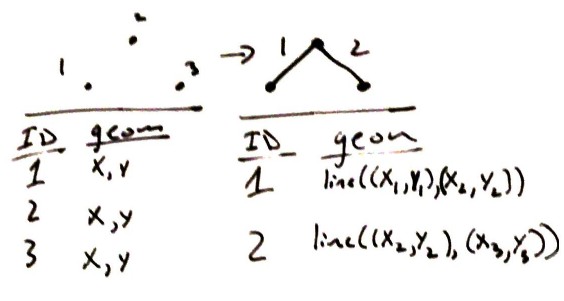 2
1
3
ID geom
1 X,Y
2 X,Y
3 X,Y
→ 1 2
ID geom
1 line((X₁,Y₁),(X₂,Y₂))
2 line((X₂,Y₂),(X₃,Y₃))